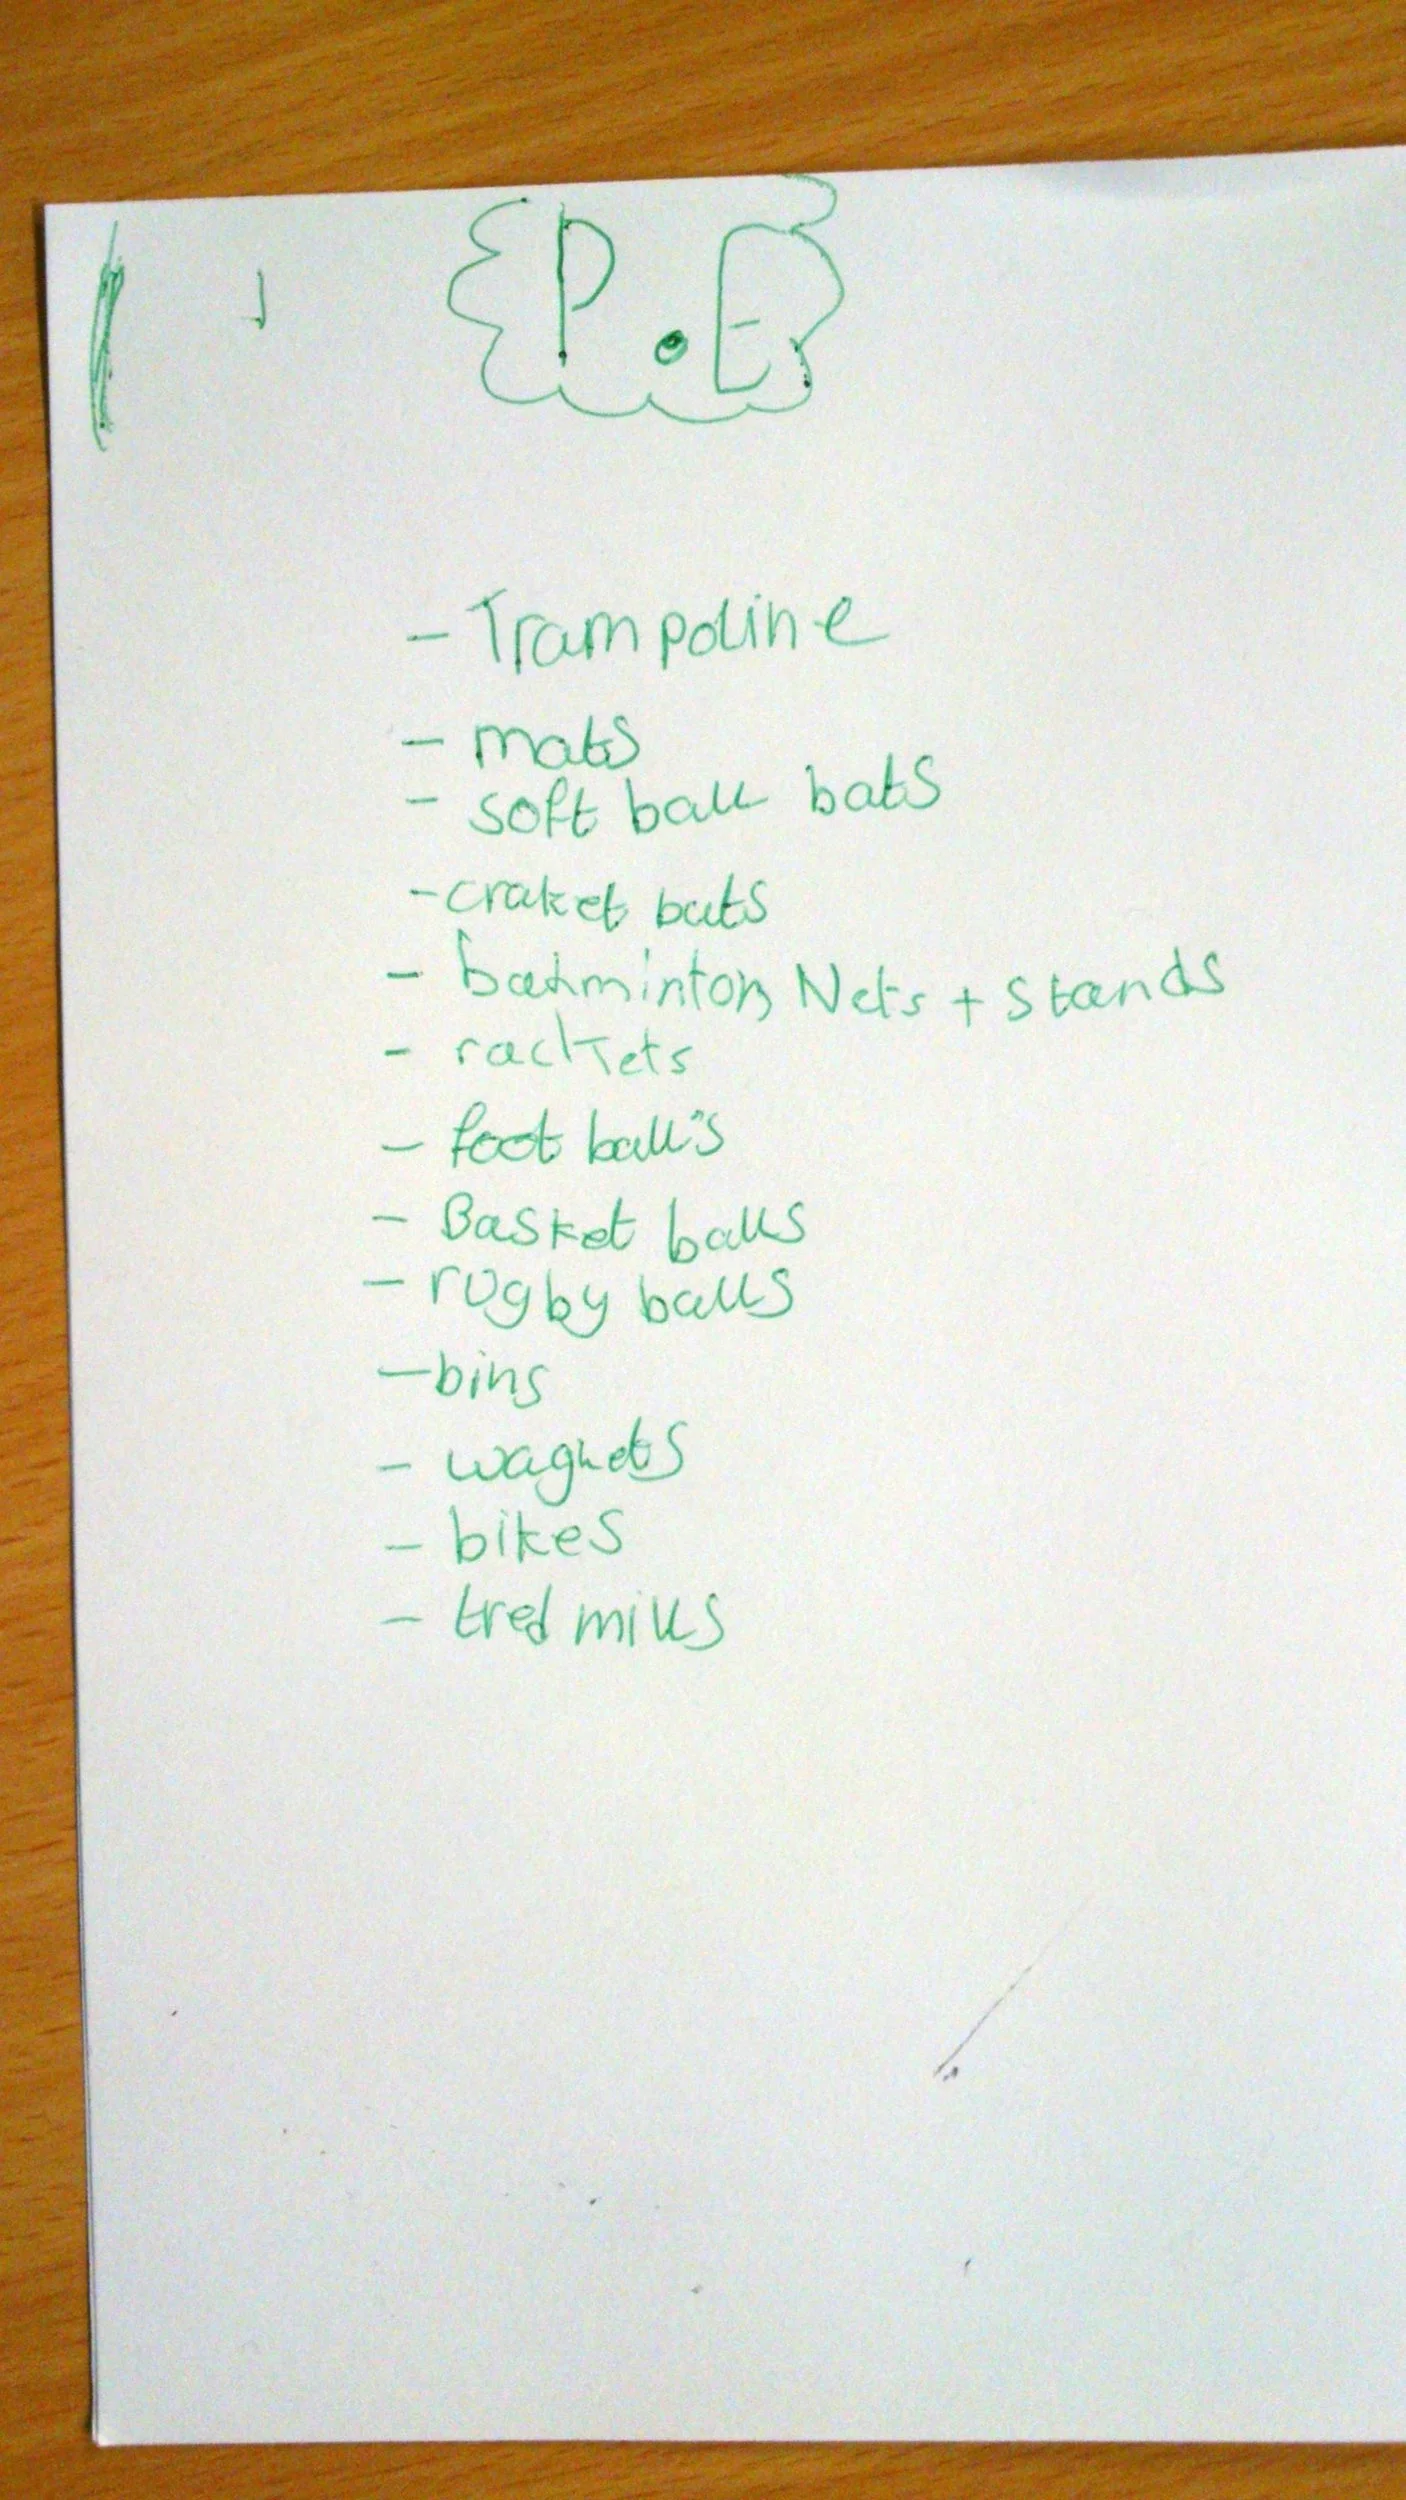 P.E
- Trampoline
- mats
- soft ball bats
- craket bats
- badminton Nets + stands
- rackets
- foot ball's
- Basket balls
- rugby balls
- bins
- waghets
- bikes
- tred mills